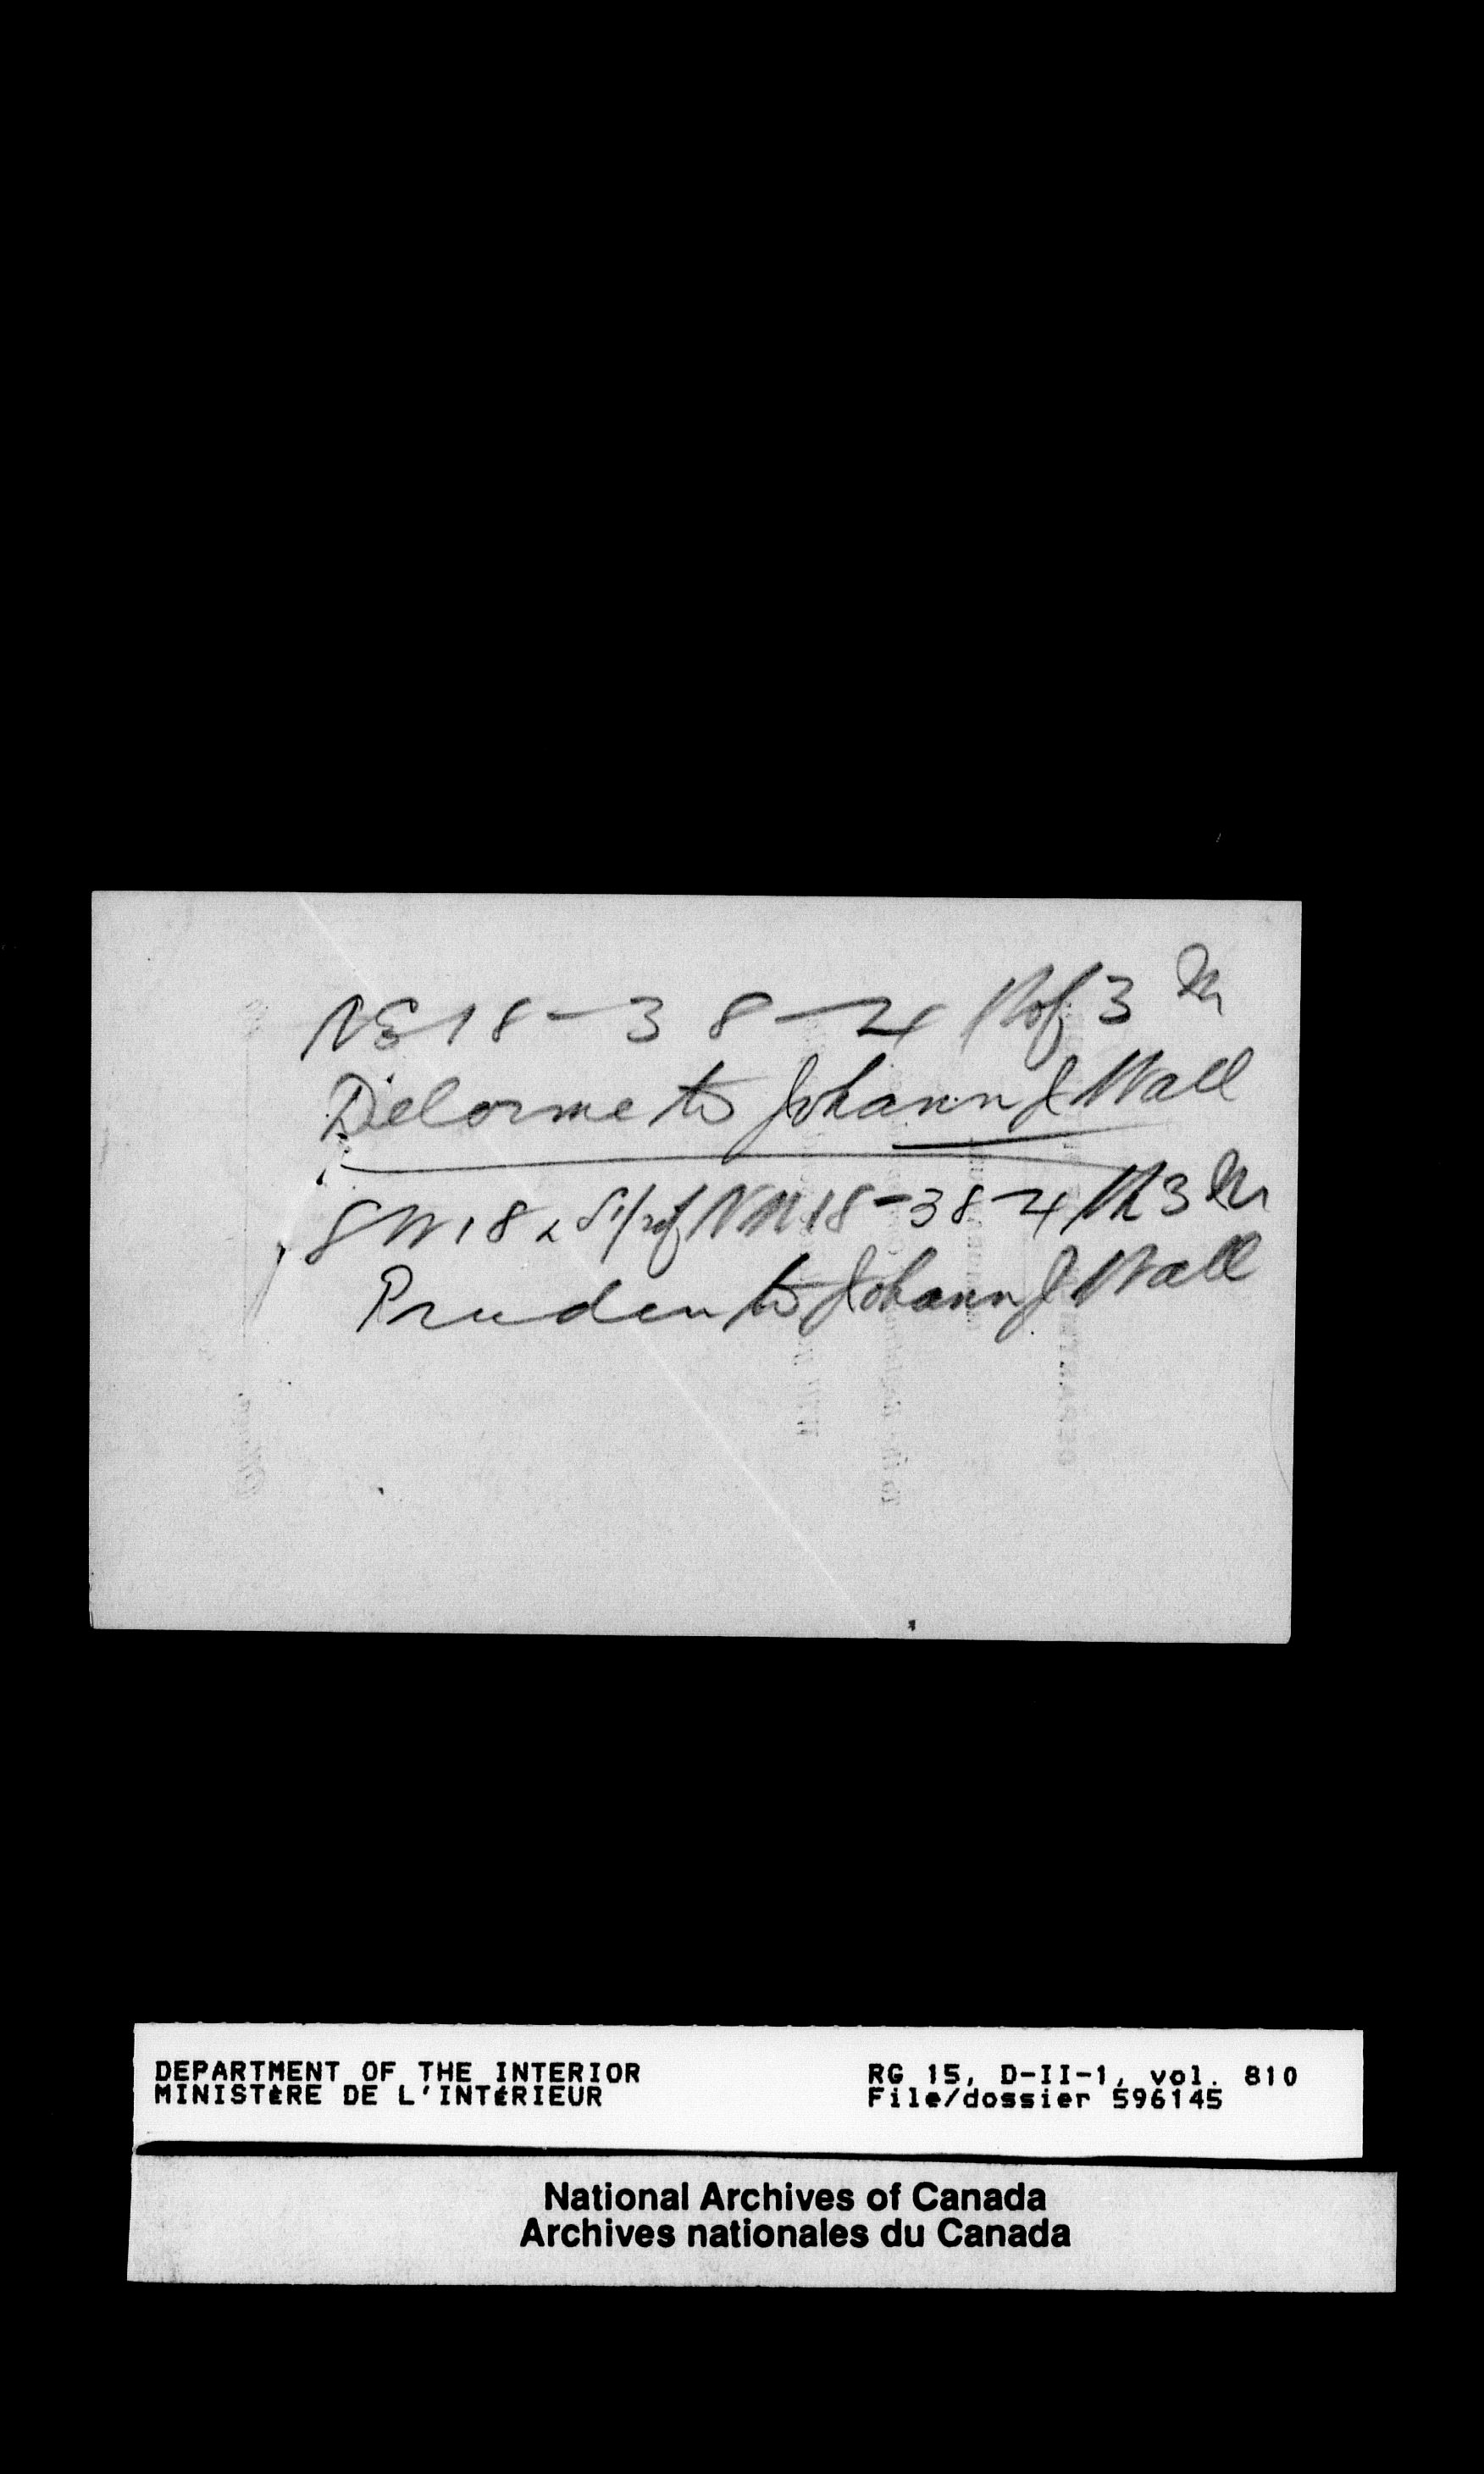 NE 18-38-4 W of 3 M
Delorme to Johann J Wall
SW 18 & S 1/2 of NW 18-38-4 W 3 M
Pruden to Johann J Wall
DEPARTMENT OF THE INTERIOR
MINISTÈRE DE L'INTÉRIEUR
RG 15, D-II-1, vol. 810
File/dossier 596145
National Archives of Canada
Archives nationales du Canada